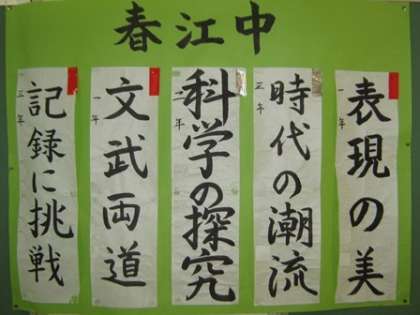 春江中
表現の美
一年
時代の潮流
三年
科学の探究
二年
文武両道
一年
記録に挑戦
三年